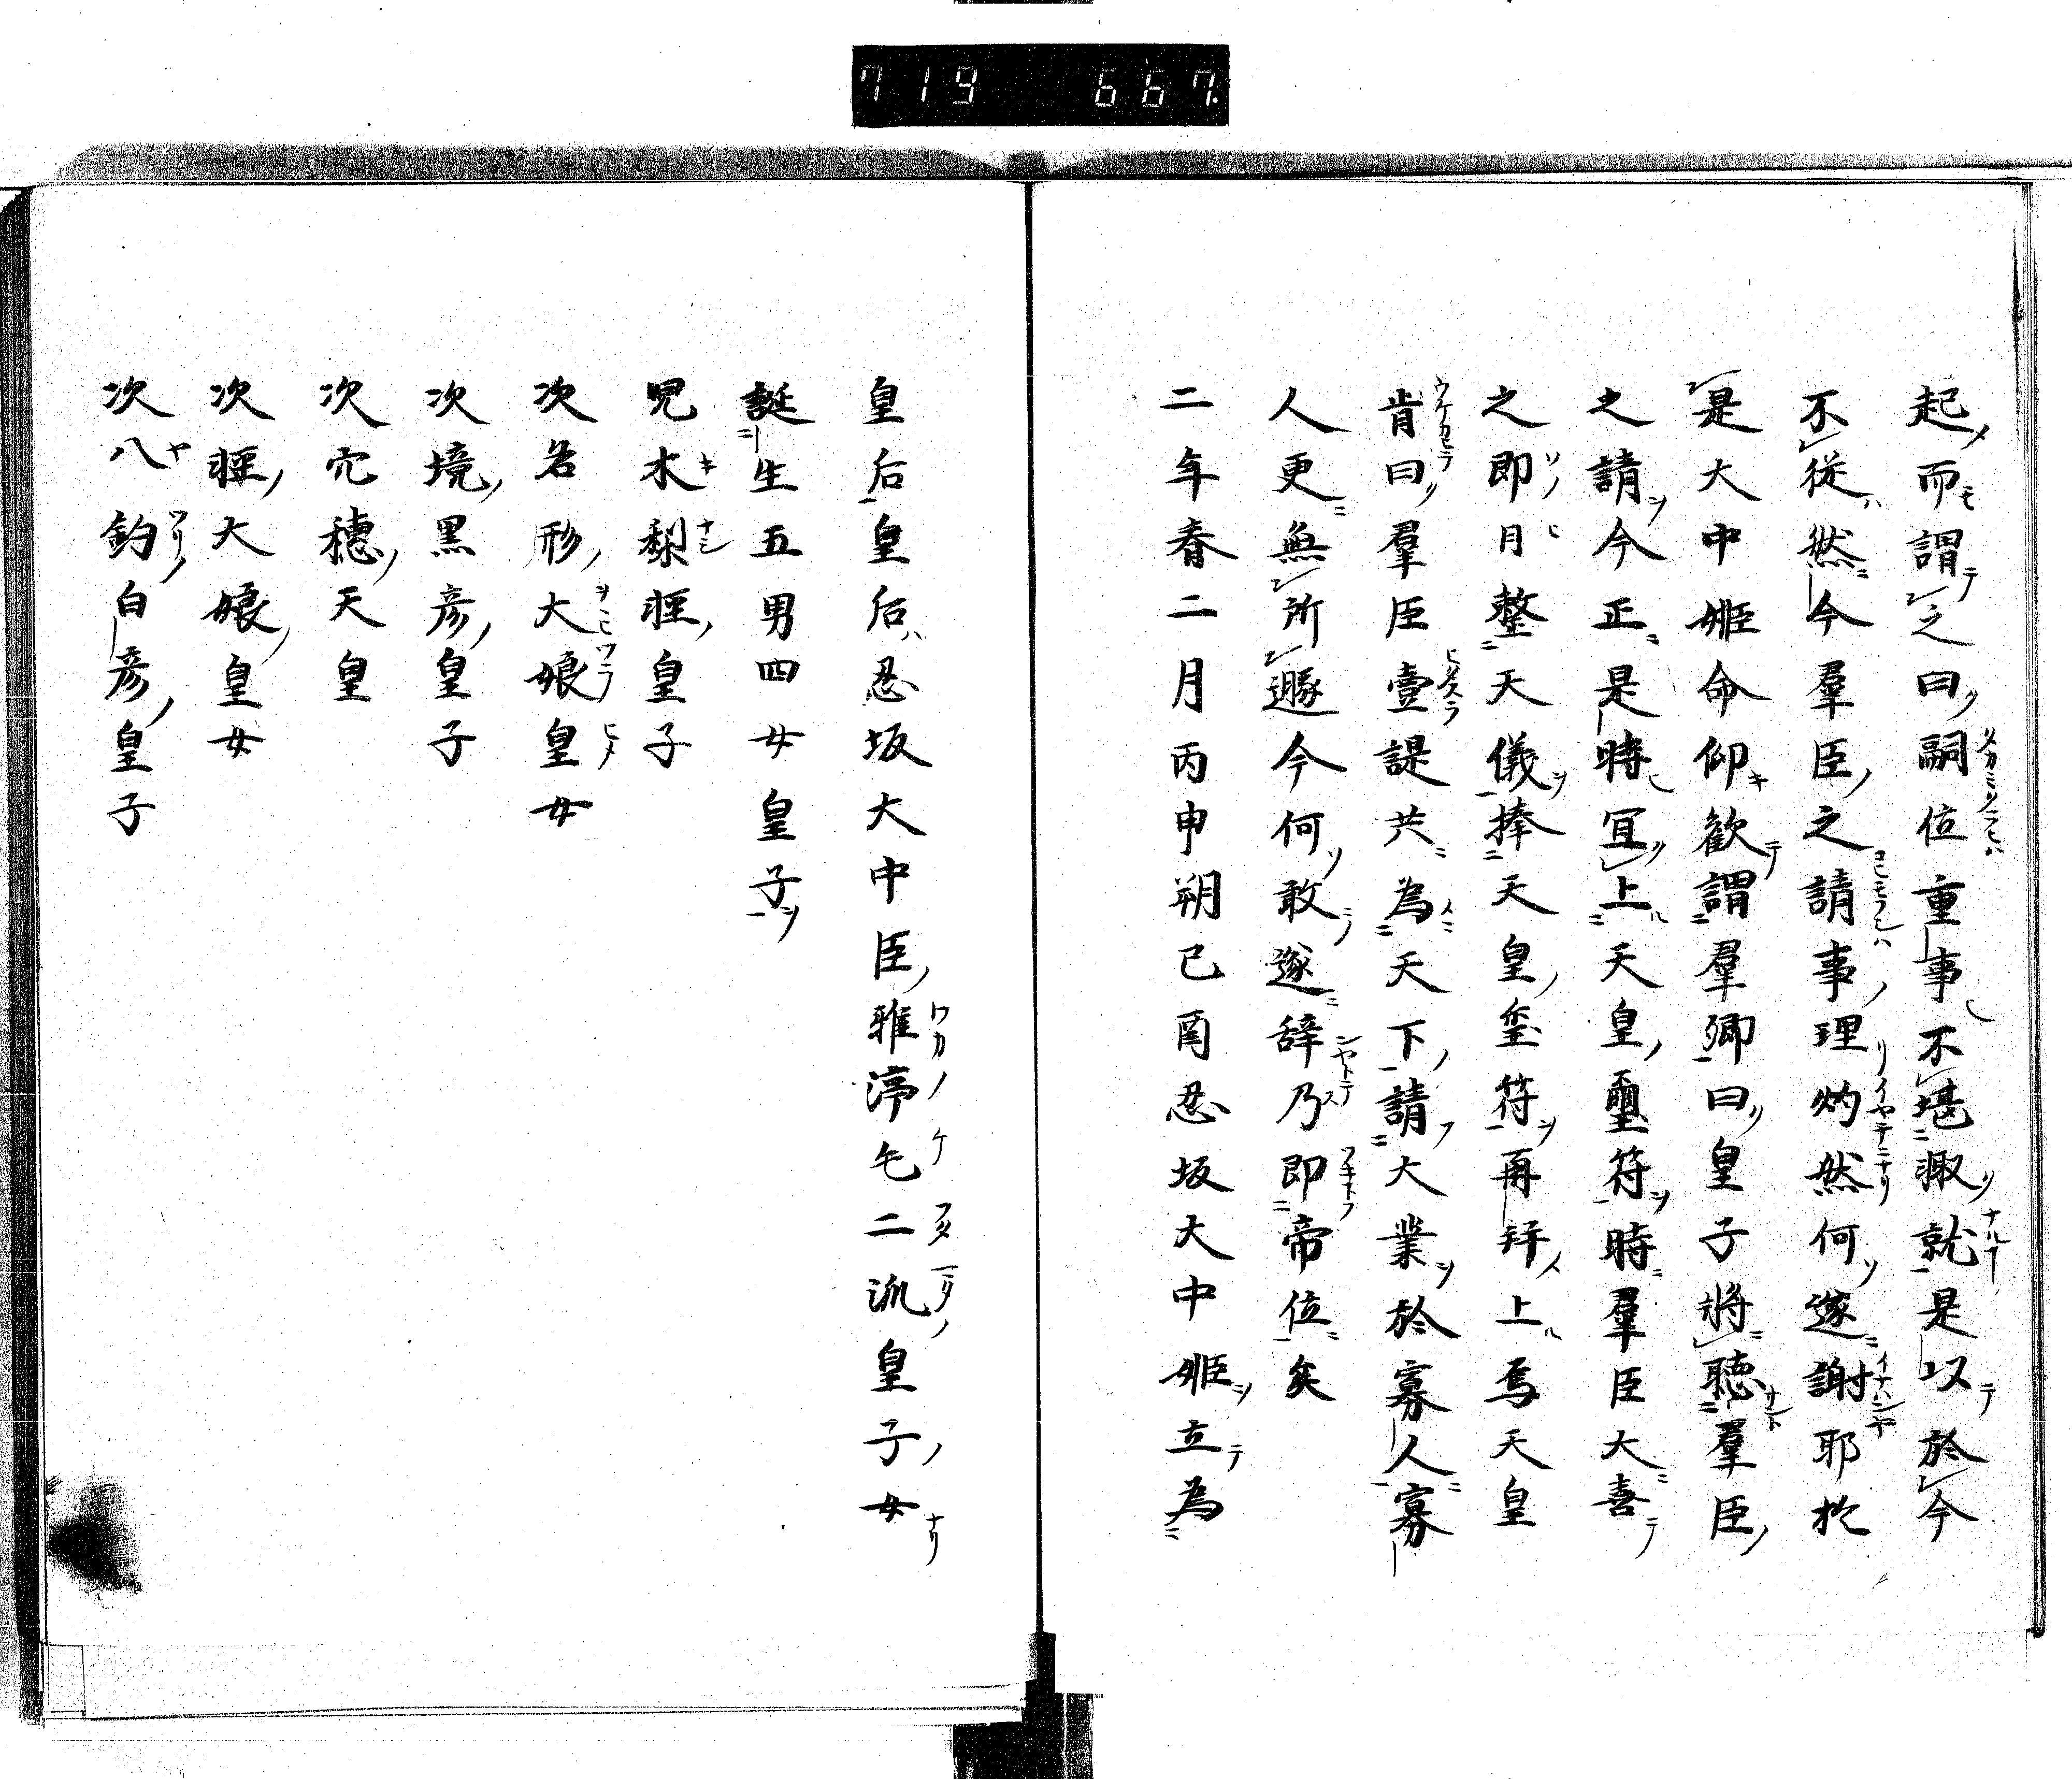 719 667
起而謂之曰嗣位重事不堪輙就是以於今
不従然今羣臣之請事理灼然何遂謝耶於
是大中姫命仰歓謂羣卿曰皇子将聴羣臣
之請今正是時宜上天皇璽符時羣臣大喜
之即日整天儀捧天皇璽符再拜上焉天皇
肯曰羣臣壹諟共為天下請大業於寡人寡
人更無所遯今何敢遂辞乃即帝位矣
二年春二月丙申朔己酉忍坂大中姫立為
皇后皇后忍坂大中臣雅渟毛二派皇子女
誕生五男四女皇子
児木梨軽皇子
次名形大娘皇女
次境黒彦皇子
次穴穂天皇
次軽大娘皇女
次八釣白彦皇子